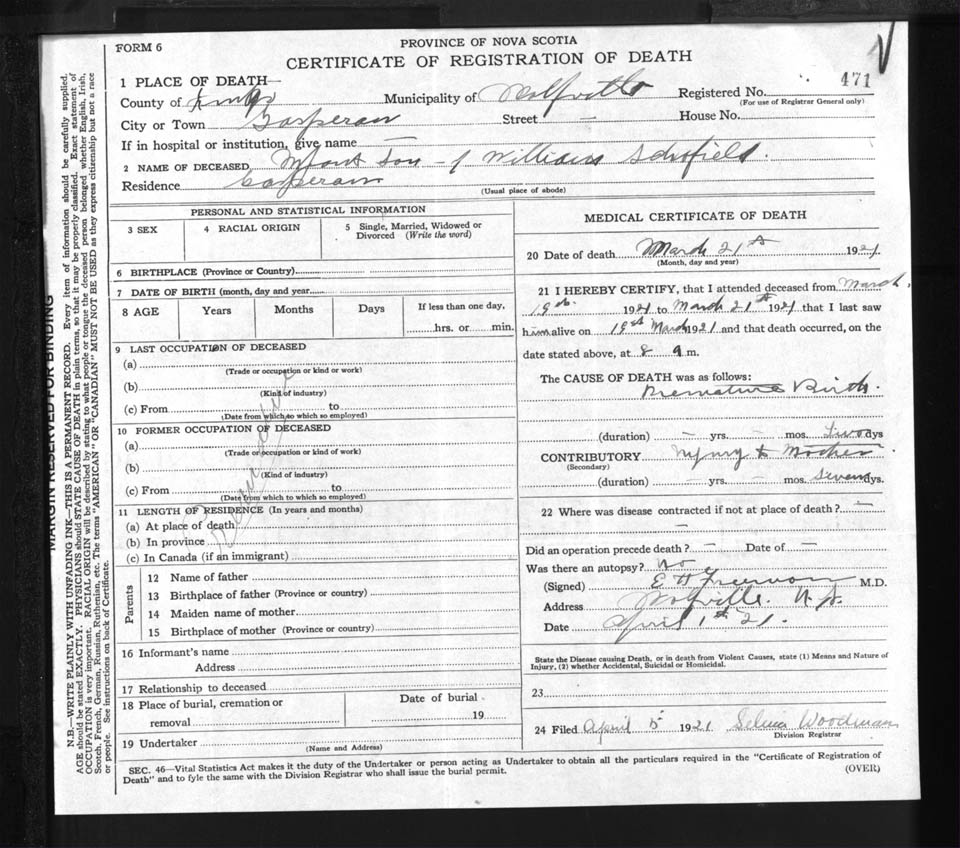 FORM 6
PROVINCE OF NOVA SCOTIA
CERTIFICATE OF REGISTRATION OF DEATH
471
1 PLACE OF DEATH—
County of Kings Municipality of Wolfville Registered No.
(For use of Registrar General only)
City or Town Gasperau Street — House No.
If in hospital or institution, give name
2 NAME OF DECEASED Infant Son of William Schofield.
Residence Gasperau
(Usual place of abode)
PERSONAL AND STATISTICAL INFORMATION
3 SEX 4 RACIAL ORIGIN 5 Single, Married, Widowed or
Divorced (Write the word)
6 BIRTHPLACE (Province or Country)
7 DATE OF BIRTH (month, day and year)
8 AGE Years Months Days If less than one day,
hrs. or min.
9 LAST OCCUPATION OF DECEASED
(a)
(Trade or occupation or kind or work)
(b)
(Kind of industry)
(c) From to
(Date from which to which so employed)
10 FORMER OCCUPATION OF DECEASED
(a)
(Trade or occupation or kind of work)
(b)
(Kind of industry)
(c) From to
(Date from which to which so employed)
11 LENGTH OF RESIDENCE (In years and months)
(a) At place of death
(b) In province
(c) In Canada (if an immigrant)
Parents
12 Name of father
13 Birthplace of father (Province or country)
14 Maiden name of mother
15 Birthplace of mother (Province or country)
16 Informant's name
Address
17 Relationship to deceased
18 Place of burial, cremation or Date of burial
removal 19
19 Undertaker
(Name and Address)
MEDICAL CERTIFICATE OF DEATH
20 Date of death March 21st 1921
(Month, day and year)
21 I HEREBY CERTIFY, that I attended deceased from March
19th 1921 to March 21st 1921 that I last saw
him alive on 19th March 1921 and that death occurred, on the
date stated above, at 8 a m.
The CAUSE OF DEATH was as follows:
Premature Birth.
(duration) — yrs. — mos. Two dys
CONTRIBUTORY Injury to Mother
(Secondary)
(duration) — yrs. — mos. Seven dys.
22 Where was disease contracted if not at place of death? —
—
Did an operation precede death? — Date of —
Was there an autopsy? No
(Signed) E H Freeman M.D.
Address Wolfville N.S.
Date April 1st 21.
State the Disease causing Death, or in death from Violent Causes, state (1) Means and Nature of
Injury, (2) whether Accidental, Suicidal or Homicidal.
23
24 Filed April 5 1921 Selina Woodman
Division Registrar
SEC. 46—Vital Statistics Act makes it the duty of the Undertaker or person acting as Undertaker to obtain all the particulars required in the "Certificate of Registration of
Death" and to fyle the same with the Division Registrar who shall issue the burial permit.
(OVER)
MARGIN RESERVED FOR BINDING
N.B.—WRITE PLAINLY WITH UNFADING INK—THIS IS A PERMANENT RECORD. Every item of information should be carefully supplied.
AGE should be stated EXACTLY. PHYSICIANS should STATE CAUSE OF DEATH in plain terms, so that it may be properly classified. Exact statement of
OCCUPATION is very important. RACIAL ORIGIN will be described by stating to what people or tongue the deceased person belonged whether English, Irish,
Scotch, French, German, Russian, Ruthenian, etc. The terms "AMERICAN" OR "CANADIAN" MUST NOT BE USED as they express citizenship but not a race
or people. See instructions on back of Certificate.